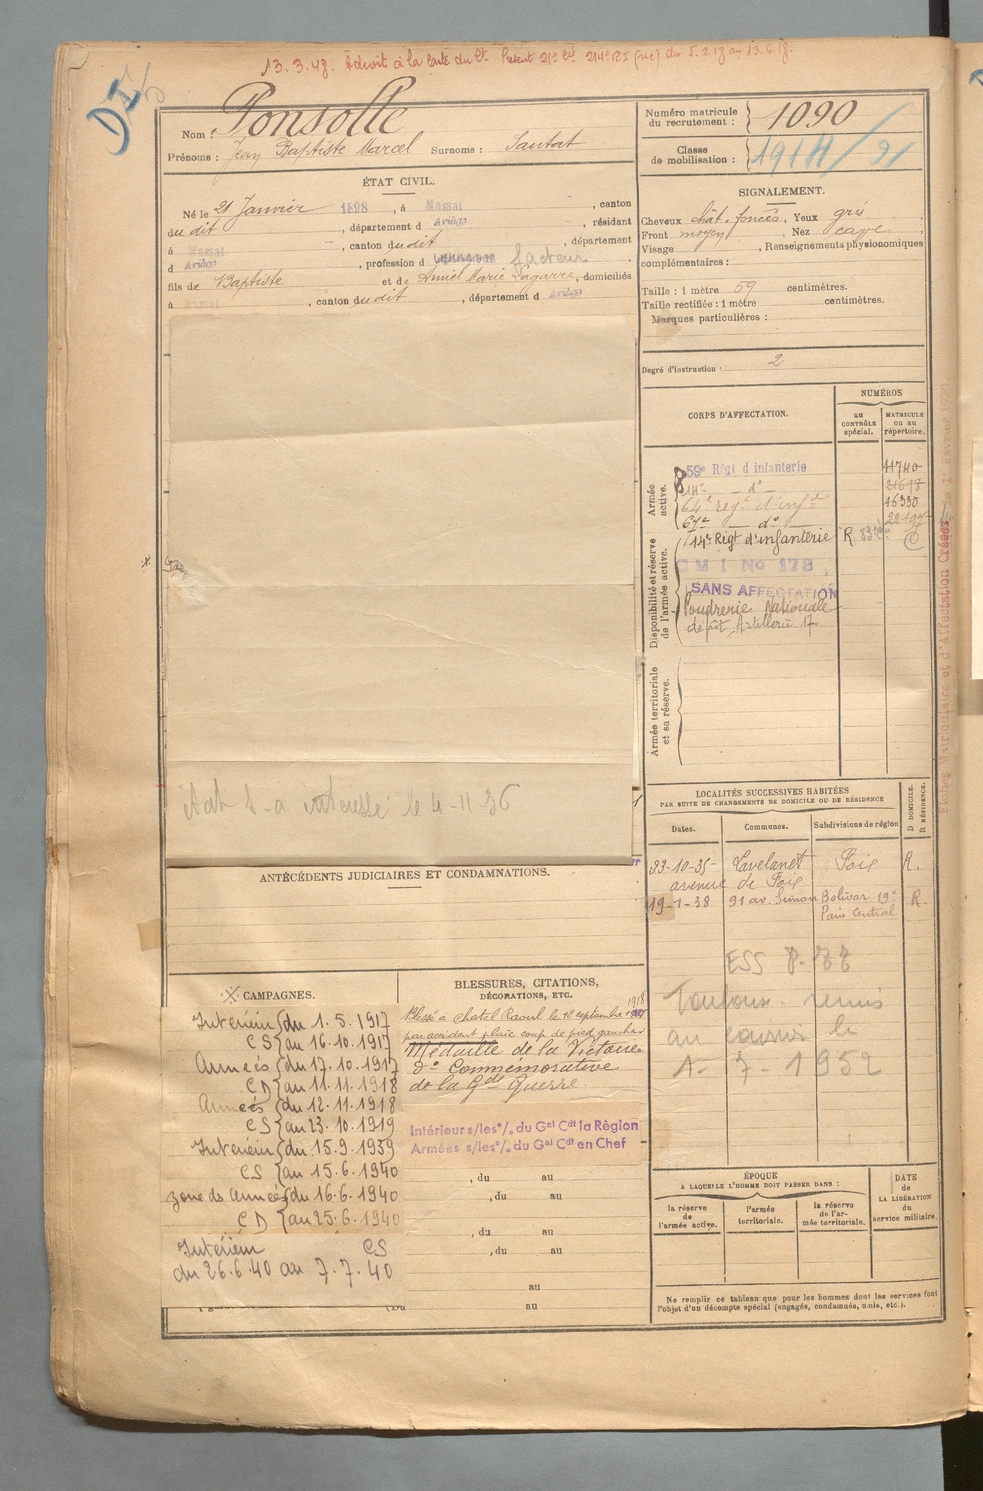 13.3.48. Admis à la Carte du Ct. Présent 21e Cie 214e RI (sic) du 5.2.18 au 13.6.18.
Nom : Ponsolle
Prénoms : Jean Baptiste Marcel Surnoms : Sautat
ÉTAT CIVIL.
Né le 21 Janvier 1898, à Massat, canton
du dit, département d Ariège, résidant
à Massat, canton du dit, département
d Ariège, profession d facteur
fils de Baptiste et de Amiel Marie Lagarre, domiciliés
à Massat, canton du dit, département d Ariège
état S-à intéressé le 4-11-36
ANTÉCÉDENTS JUDICIAIRES ET CONDAMNATIONS.
X CAMPAGNES.
Intérieur {du 1.5.1917
CS {au 16.10.1917
Armées {du 17.10.1917
CD {au 11.11.1918
Armées {du 12.11.1918
CS {au 23.10.1919
Intérieur {du 15.9.1939
CS {au 15.6.1940
zone des Armées {du 16.6.1940
CD {au 25.6.1940
Intérieur CS
du 26.6.40 au 7.7.40
BLESSURES, CITATIONS,
DÉCORATIONS, ETC.
Blessé à Chatel Raoul le 12 septembre 1918
par accident plaie coup de pied gauche
Médaille de la Victoire
do Commémorative
de la Gde Guerre
Intérieur s/les °/. du Gal Cdt la Règion
Armées s/les °/. du Gal Cdt en Chef
, du au
, du au
, du au
, du au
au
au
Numéro matricule
du recrutement : 1090
Classe
de mobilisation : 1914/21
SIGNALEMENT.
Cheveux chât. foncés, Yeux gris
Front moyen, Nez cave
Visage , Renseignements physionomiques
complémentaires :
Taille : 1 mètre 59 centimètres.
Taille rectifiée : 1 mètre centimètres.
Marques particulières :
Degré d'instruction : 2
CORPS D'AFFECTATION.
NUMÉROS
au
CONTRÔLE
spécial.
MATRICULE
ou au
répertoire.
Armée
active.
59e Régt d Infanterie 11740
14e do 21618
64e regt d'infie 16330
67e do 22197
Disponibilité et réserve
de l'armée active.
14e Régt d'infanterie R
C M I No 178
SANS AFFECTATION
Poudrerie Nationale
dépôt Artillerie 17
Armée territoriale
et sa réserve.
LOCALITÉS SUCCESSIVES HABITÉES
PAR SUITE DE CHANGEMENTS DE DOMICILE OU DE RÉSIDENCE
Dates.
Communes.
Subdivisions de région
D DOMICILE.
R RÉSIDENCE.
23-10-35- Lavelanet Foix R.
avenue de Foix
19-1-38 91 av. Simon Bolivar 19e R.
Paris Central
Toulouse remis
au le
1-7-1952
ÉPOQUE
A LAQUELLE L'HOMME DOIT PASSER DANS :
la réserve
de
l'armée active.
l'armée
territoriale.
la réserve
de l'ar-
mée territoriale.
DATE
de
LA LIBÉRATION
du
service militaire.
Ne remplir ce tableau que pour les hommes dont les services font
l'objet d'un décompte spécial (engagés, condamnés, omis, etc.).